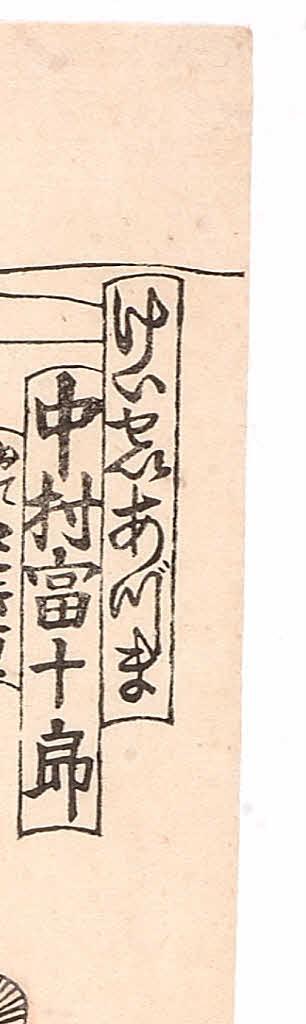 けいせいあづま
中村富十郎